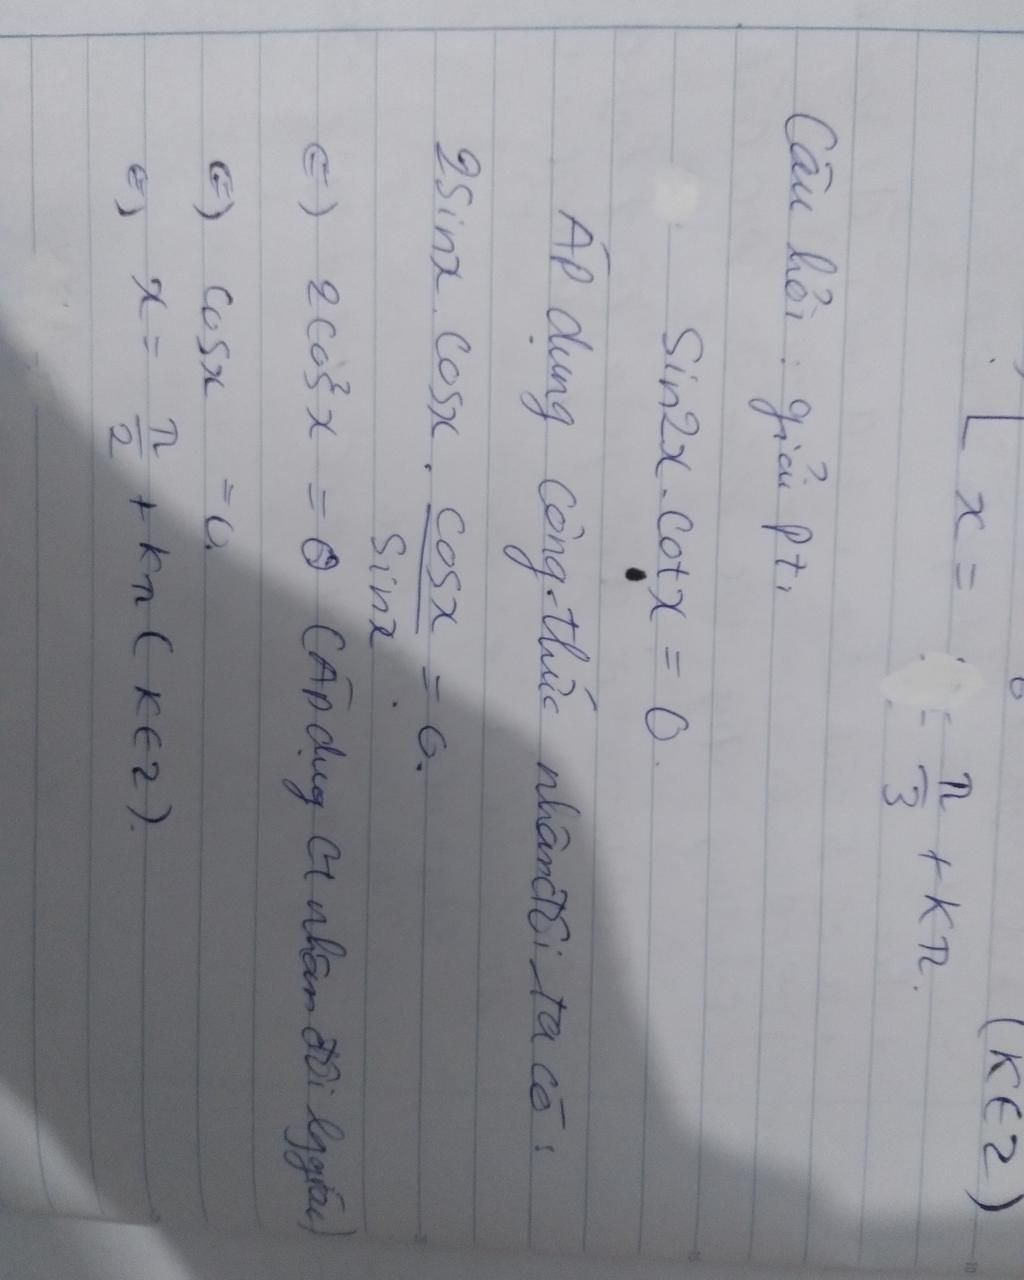 (K∈Z)
x = = π/3 + Kπ.
Câu hỏi : giải pt,
Sin2x.Cotx = 0.
Áp dụng Công thức nhân đôi ta có :
2Sinx.Cosx . Cosx/Sinx = 0.
⇔ 2cos²x = 0 (Áp dụng Ct nhân đôi lượng giác)
⇔ Cosx = 0.
⇔ x = π/2 + Kπ (K∈Z).